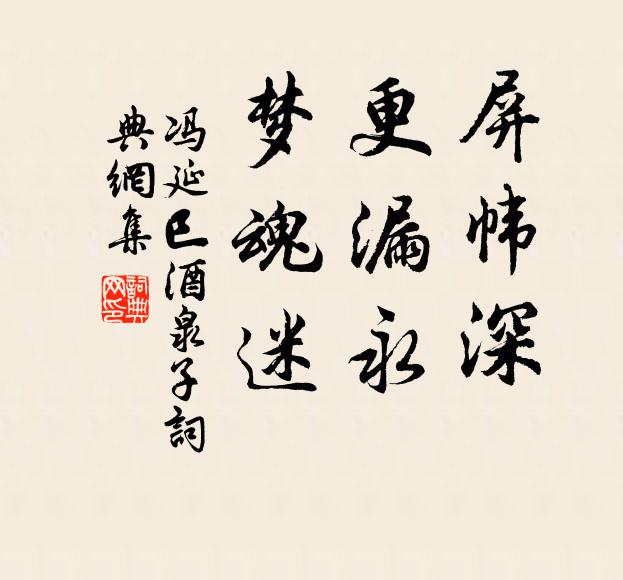 屏帏深
更漏永
梦魂迷
冯延巳酒泉子詞
典網集
詞典网印